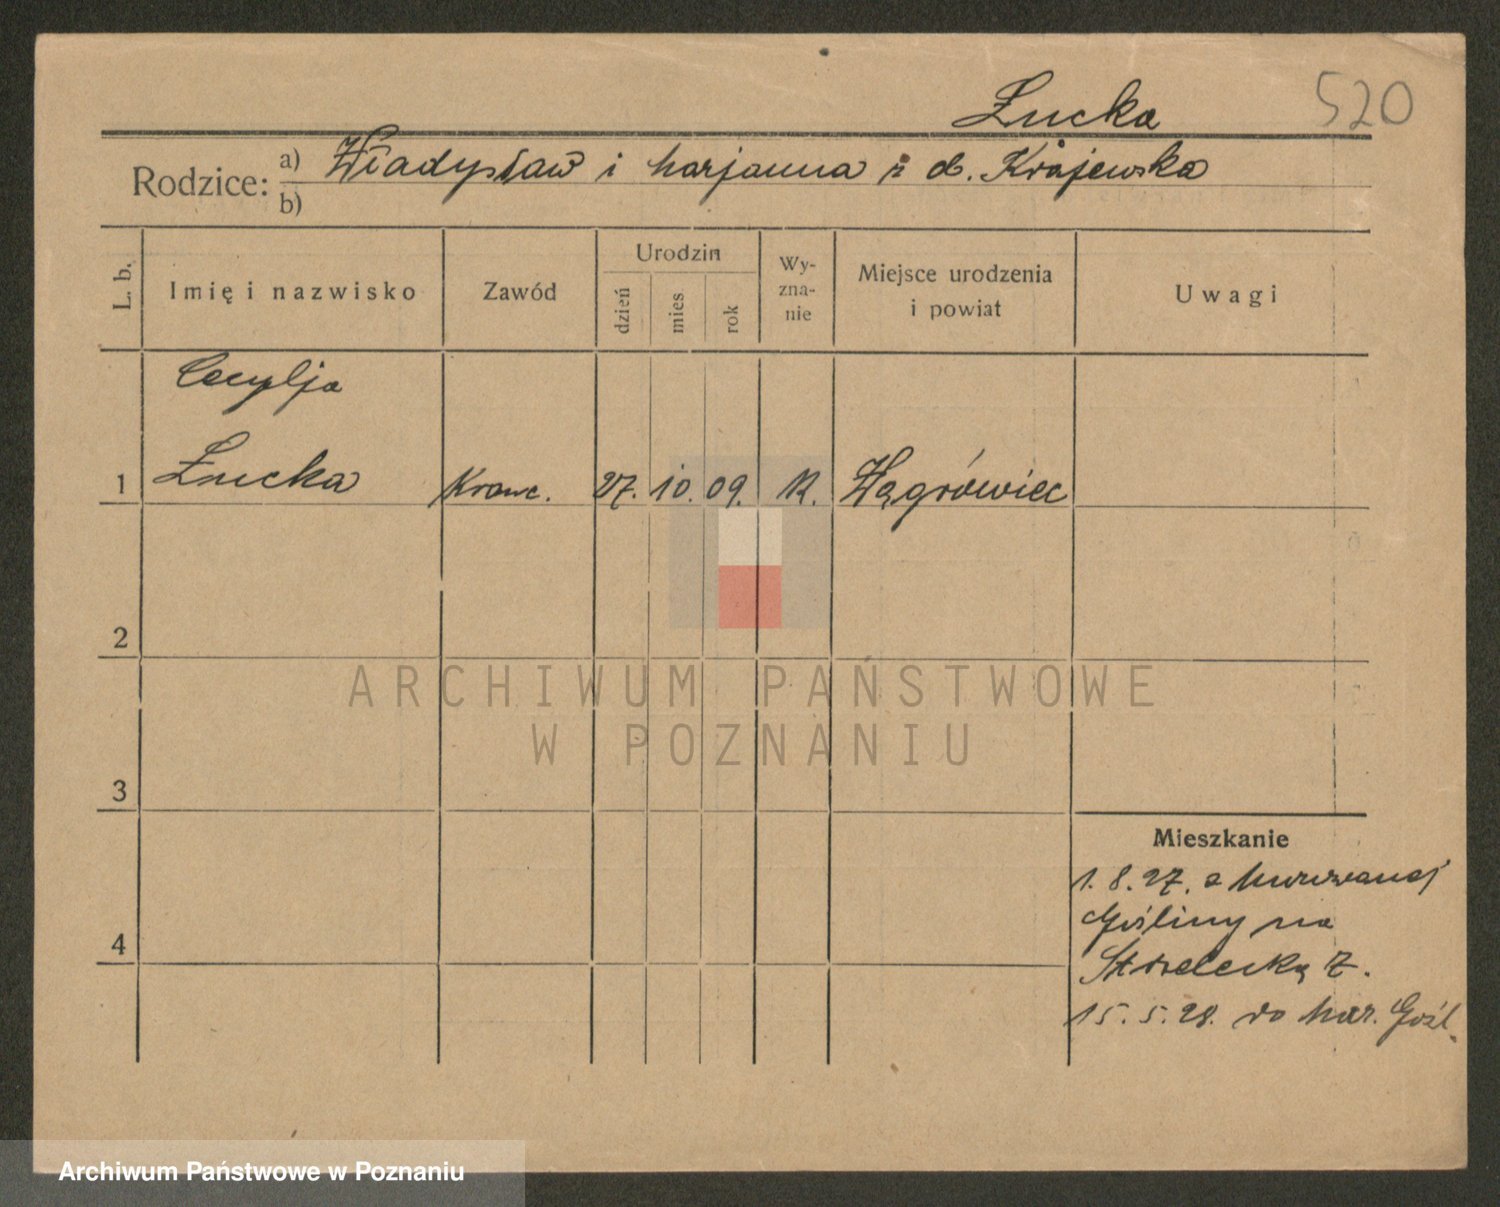 520
Łucka
Rodzice: a) Władysław i Marjanna z d. Krajewska
b)
L. b.
Imię i nazwisko
Zawód
Urodzin
dzień
mies
rok
Wy-
zna-
nie
Miejsce urodzenia
i powiat
Uwagi
Cecylja
1 Łucka Krawc. 27. 10. 09. K. Wągrówiec
2
3
4
Mieszkanie
1. 8. 27. z Murowanej
Gośliny na
Strzelecką 7.
15. 5. 28. do Mur. Gośl.
ARCHIWUM PAŃSTWOWE
W POZNANIU
Archiwum Państwowe w Poznaniu